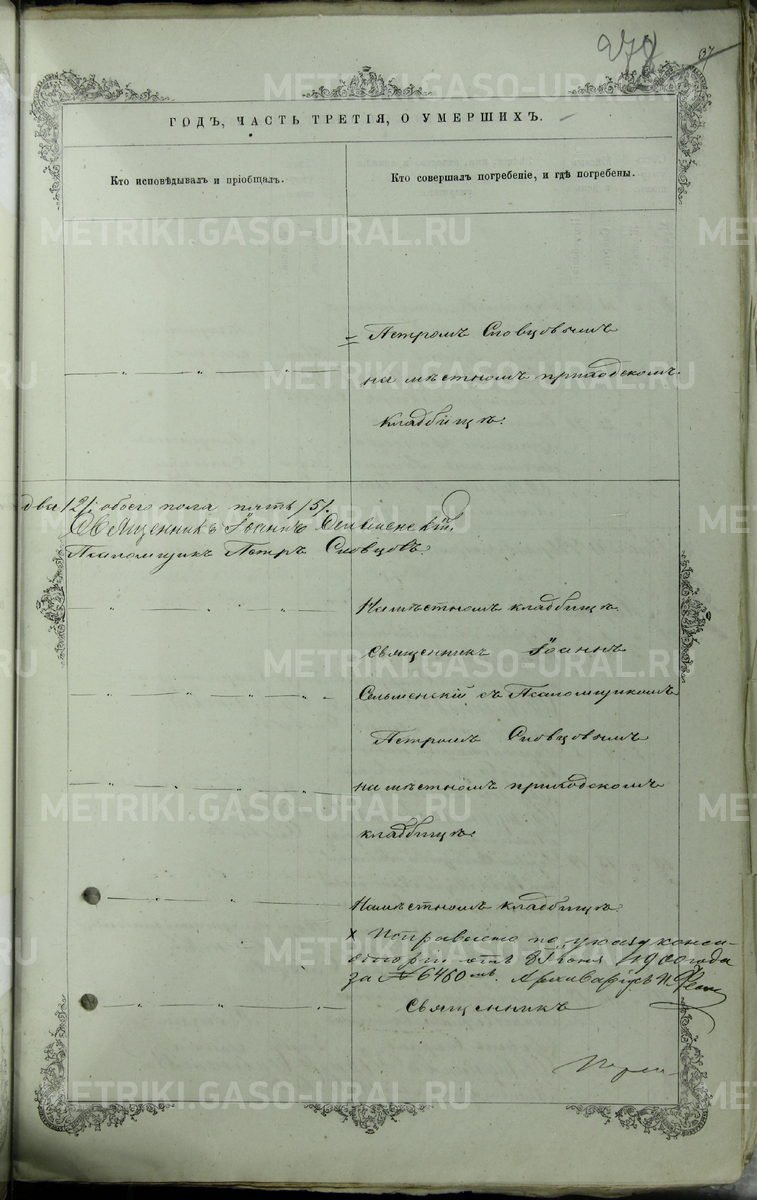 278
137
ГОДЪ, ЧАСТЬ ТРЕТІЯ, О УМЕРШИХЪ.
Кто исповѣдывалъ и пріобщалъ.
Кто совершалъ погребеніе, и гдѣ погребены.
Петромъ Словцовымъ
на мѣстномъ приходскомъ
кладбищѣ.
два /2/ обоего пола пять /5/.
Священникъ Іоаннъ
Псаломщикъ Петръ Словцовъ.
На мѣстномъ кладбищѣ
Священникъ Іоаннъ
Сельменскій съ Псаломщикомъ
Петромъ Словцовымъ
на мѣстномъ приходскомъ
кладбищѣ
На мѣстномъ кладбищѣ
X по указу конси-
сторіи отъ 1900 года
за № 6460 Архиваріусъ
Священникъ
METRIKI.GASO-URAL.RU